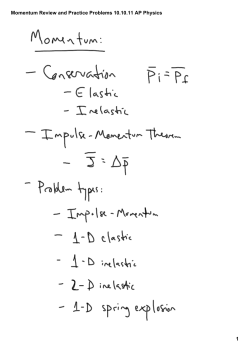 Momentum Review and Practice Problems 10.10.11 AP Physics
Momentum:
- Conservation P̄i = P̄f
- Elastic
- Inelastic
- Impulse-Momentum Theorem
- J̄ = Δp̄
- Problem types:
- Impulse-Momentum
- 1-D elastic
- 1-D inelastic
- 2-D inelastic
- 1-D spring explosion
1